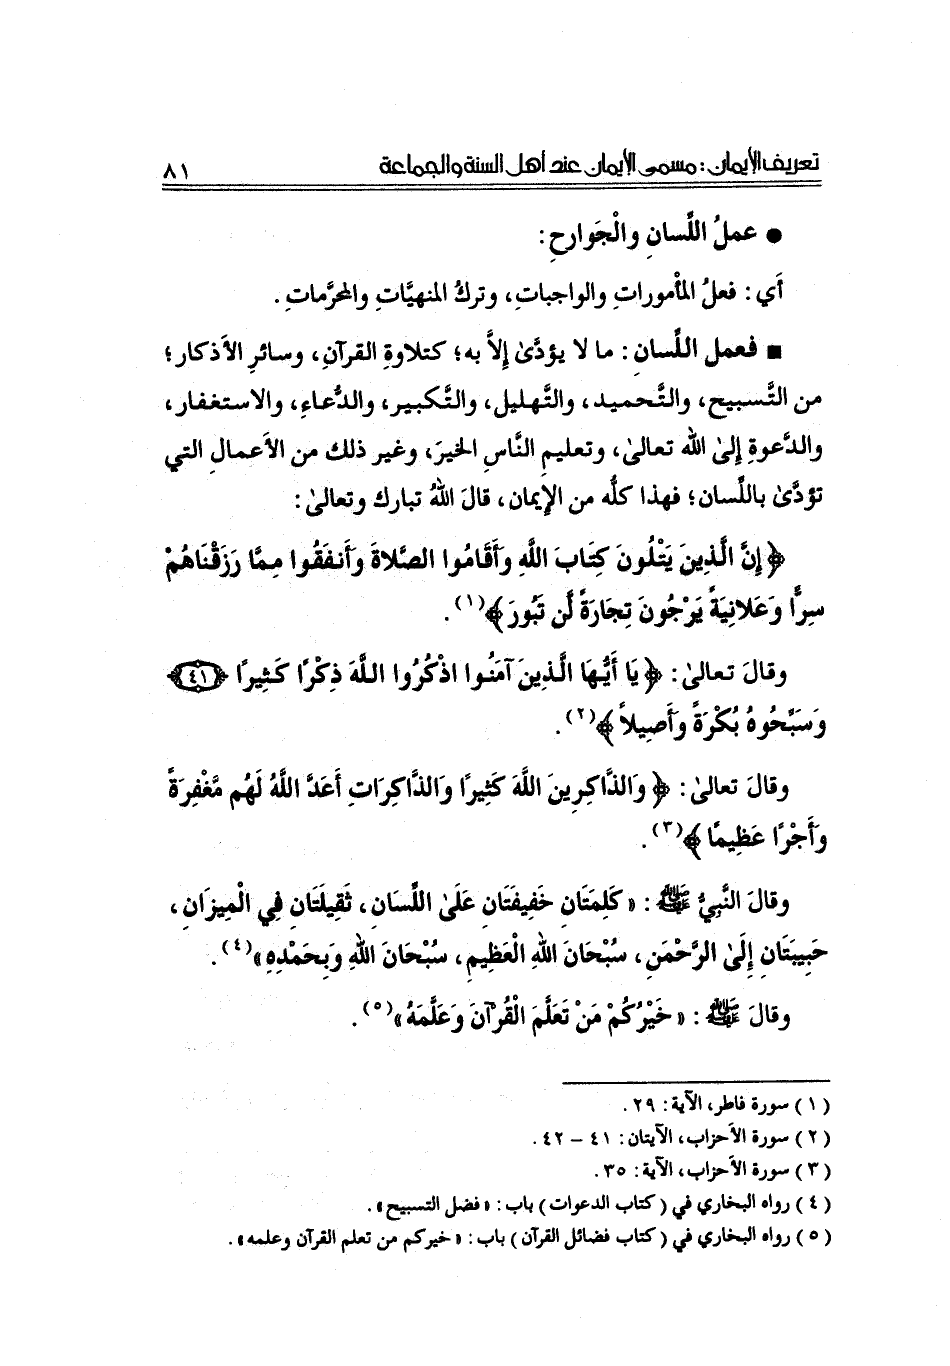 تعريف الإيمان : مسمى الإيمان عند أهل السنة والجماعة ٨١
● عملُ اللِّسانِ والْجَوارحِ :
أَي : فعلُ المأْموراتِ والواجباتِ، وتركُ المنهيَّاتِ والمحرَّماتِ .
■ فعمل اللِّسانِ : ما لا يؤدَّىٰ إِلاَّ به؛ كتلاوةِ القرآنِ، وسائرِ الأَذكار؛
من التَّسبيح، والتَّحميد، والتَّهليل، والتَّكبير، والدُّعاءِ، والاستغفار،
والدَّعوةِ إِلىٰ الله تعالىٰ، وتعليمِ النَّاسِ الخيرَ، وغير ذلك من الأَعمالِ التي
تؤدَّىٰ باللِّسان؛ فهذا كلُّه من الإِيمان، قالَ اللهُ تبارك وتعالىٰ :
﴿ إِنَّ الَّذِينَ يَتْلُونَ كِتَابَ اللَّهِ وَأَقَامُوا الصَّلاةَ وَأَنفَقُوا مِمَّا رَزَقْنَاهُمْ
سِرًّا وَعَلانِيَةً يَرْجُونَ تِجَارَةً لَّن تَبُورَ ﴾(١) .
وقالَ تعالىٰ : ﴿ يَا أَيُّهَا الَّذِينَ آمَنُوا اذْكُرُوا اللَّهَ ذِكْرًا كَثِيرًا ﴿٤١﴾
وَسَبِّحُوهُ بُكْرَةً وَأَصِيلاً ﴾(٢) .
وقالَ تعالىٰ : ﴿ وَالذَّاكِرِينَ اللَّهَ كَثِيرًا وَالذَّاكِرَاتِ أَعَدَّ اللَّهُ لَهُم مَّغْفِرَةً
وَأَجْرًا عَظِيمًا ﴾(٣) .
وقالَ النَّبِيُّ ﷺ : « كَلِمَتَانِ خَفِيفَتَانِ عَلَىٰ اللِّسَانِ، ثَقِيلَتَانِ فِي الْمِيزَانِ،
حَبِيبَتَانِ إِلَىٰ الرَّحْمَنِ، سُبْحَانَ اللهِ الْعَظِيمِ، سُبْحَانَ اللهِ وَبِحَمْدِهِ »(٤) .
وقالَ ﷺ : « خَيْرُكُمْ مَنْ تَعَلَّمَ الْقُرْآنَ وَعَلَّمَهُ »(٥) .
(١) سورة فاطر، الآية : ٢٩ .
(٢) سورة الأَحزاب، الآيتان : ٤١ – ٤٢ .
(٣) سورة الأَحزاب، الآية : ٣٥ .
(٤) رواه البخاري في (كتاب الدعوات) باب : « فضل التسبيح » .
(٥) رواه البخاري في (كتاب فضائل القرآن) باب : « خيركم من تعلم القرآن وعلمه » .